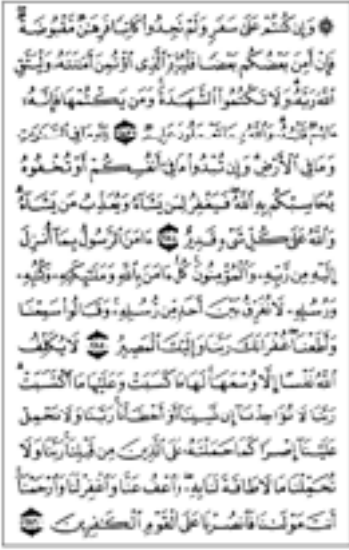 ۞ وَإِن كُنتُمْ عَلَىٰ سَفَرٍ وَلَمْ تَجِدُوا۟ كَاتِبًا فَرِهَٰنٌ مَّقْبُوضَةٌ ۖ
فَإِنْ أَمِنَ بَعْضُكُم بَعْضًا فَلْيُؤَدِّ ٱلَّذِى ٱؤْتُمِنَ أَمَٰنَتَهُۥ وَلْيَتَّقِ
ٱللَّهَ رَبَّهُۥ ۗ وَلَا تَكْتُمُوا۟ ٱلشَّهَٰدَةَ ۚ وَمَن يَكْتُمْهَا فَإِنَّهُۥٓ
ءَاثِمٌ قَلْبُهُۥ ۗ وَٱللَّهُ بِمَا تَعْمَلُونَ عَلِيمٌ ۝٢٨٣ لِّلَّهِ مَا فِى ٱلسَّمَٰوَٰتِ
وَمَا فِى ٱلْأَرْضِ ۗ وَإِن تُبْدُوا۟ مَا فِىٓ أَنفُسِكُمْ أَوْ تُخْفُوهُ
يُحَاسِبْكُم بِهِ ٱللَّهُ ۖ فَيَغْفِرُ لِمَن يَشَآءُ وَيُعَذِّبُ مَن يَشَآءُ ۗ
وَٱللَّهُ عَلَىٰ كُلِّ شَىْءٍ قَدِيرٌ ۝٢٨٤ ءَامَنَ ٱلرَّسُولُ بِمَآ أُنزِلَ
إِلَيْهِ مِن رَّبِّهِۦ وَٱلْمُؤْمِنُونَ ۚ كُلٌّ ءَامَنَ بِٱللَّهِ وَمَلَٰٓئِكَتِهِۦ وَكُتُبِهِۦ
وَرُسُلِهِۦ لَا نُفَرِّقُ بَيْنَ أَحَدٍ مِّن رُّسُلِهِۦ ۚ وَقَالُوا۟ سَمِعْنَا
وَأَطَعْنَا ۖ غُفْرَانَكَ رَبَّنَا وَإِلَيْكَ ٱلْمَصِيرُ ۝٢٨٥ لَا يُكَلِّفُ
ٱللَّهُ نَفْسًا إِلَّا وُسْعَهَا ۚ لَهَا مَا كَسَبَتْ وَعَلَيْهَا مَا ٱكْتَسَبَتْ ۗ
رَبَّنَا لَا تُؤَاخِذْنَآ إِن نَّسِينَآ أَوْ أَخْطَأْنَا ۚ رَبَّنَا وَلَا تَحْمِلْ
عَلَيْنَآ إِصْرًا كَمَا حَمَلْتَهُۥ عَلَى ٱلَّذِينَ مِن قَبْلِنَا ۚ رَبَّنَا وَلَا
تُحَمِّلْنَا مَا لَا طَاقَةَ لَنَا بِهِۦ ۖ وَٱعْفُ عَنَّا وَٱغْفِرْ لَنَا وَٱرْحَمْنَآ ۚ
أَنتَ مَوْلَىٰنَا فَٱنصُرْنَا عَلَى ٱلْقَوْمِ ٱلْكَٰفِرِينَ ۝٢٨٦